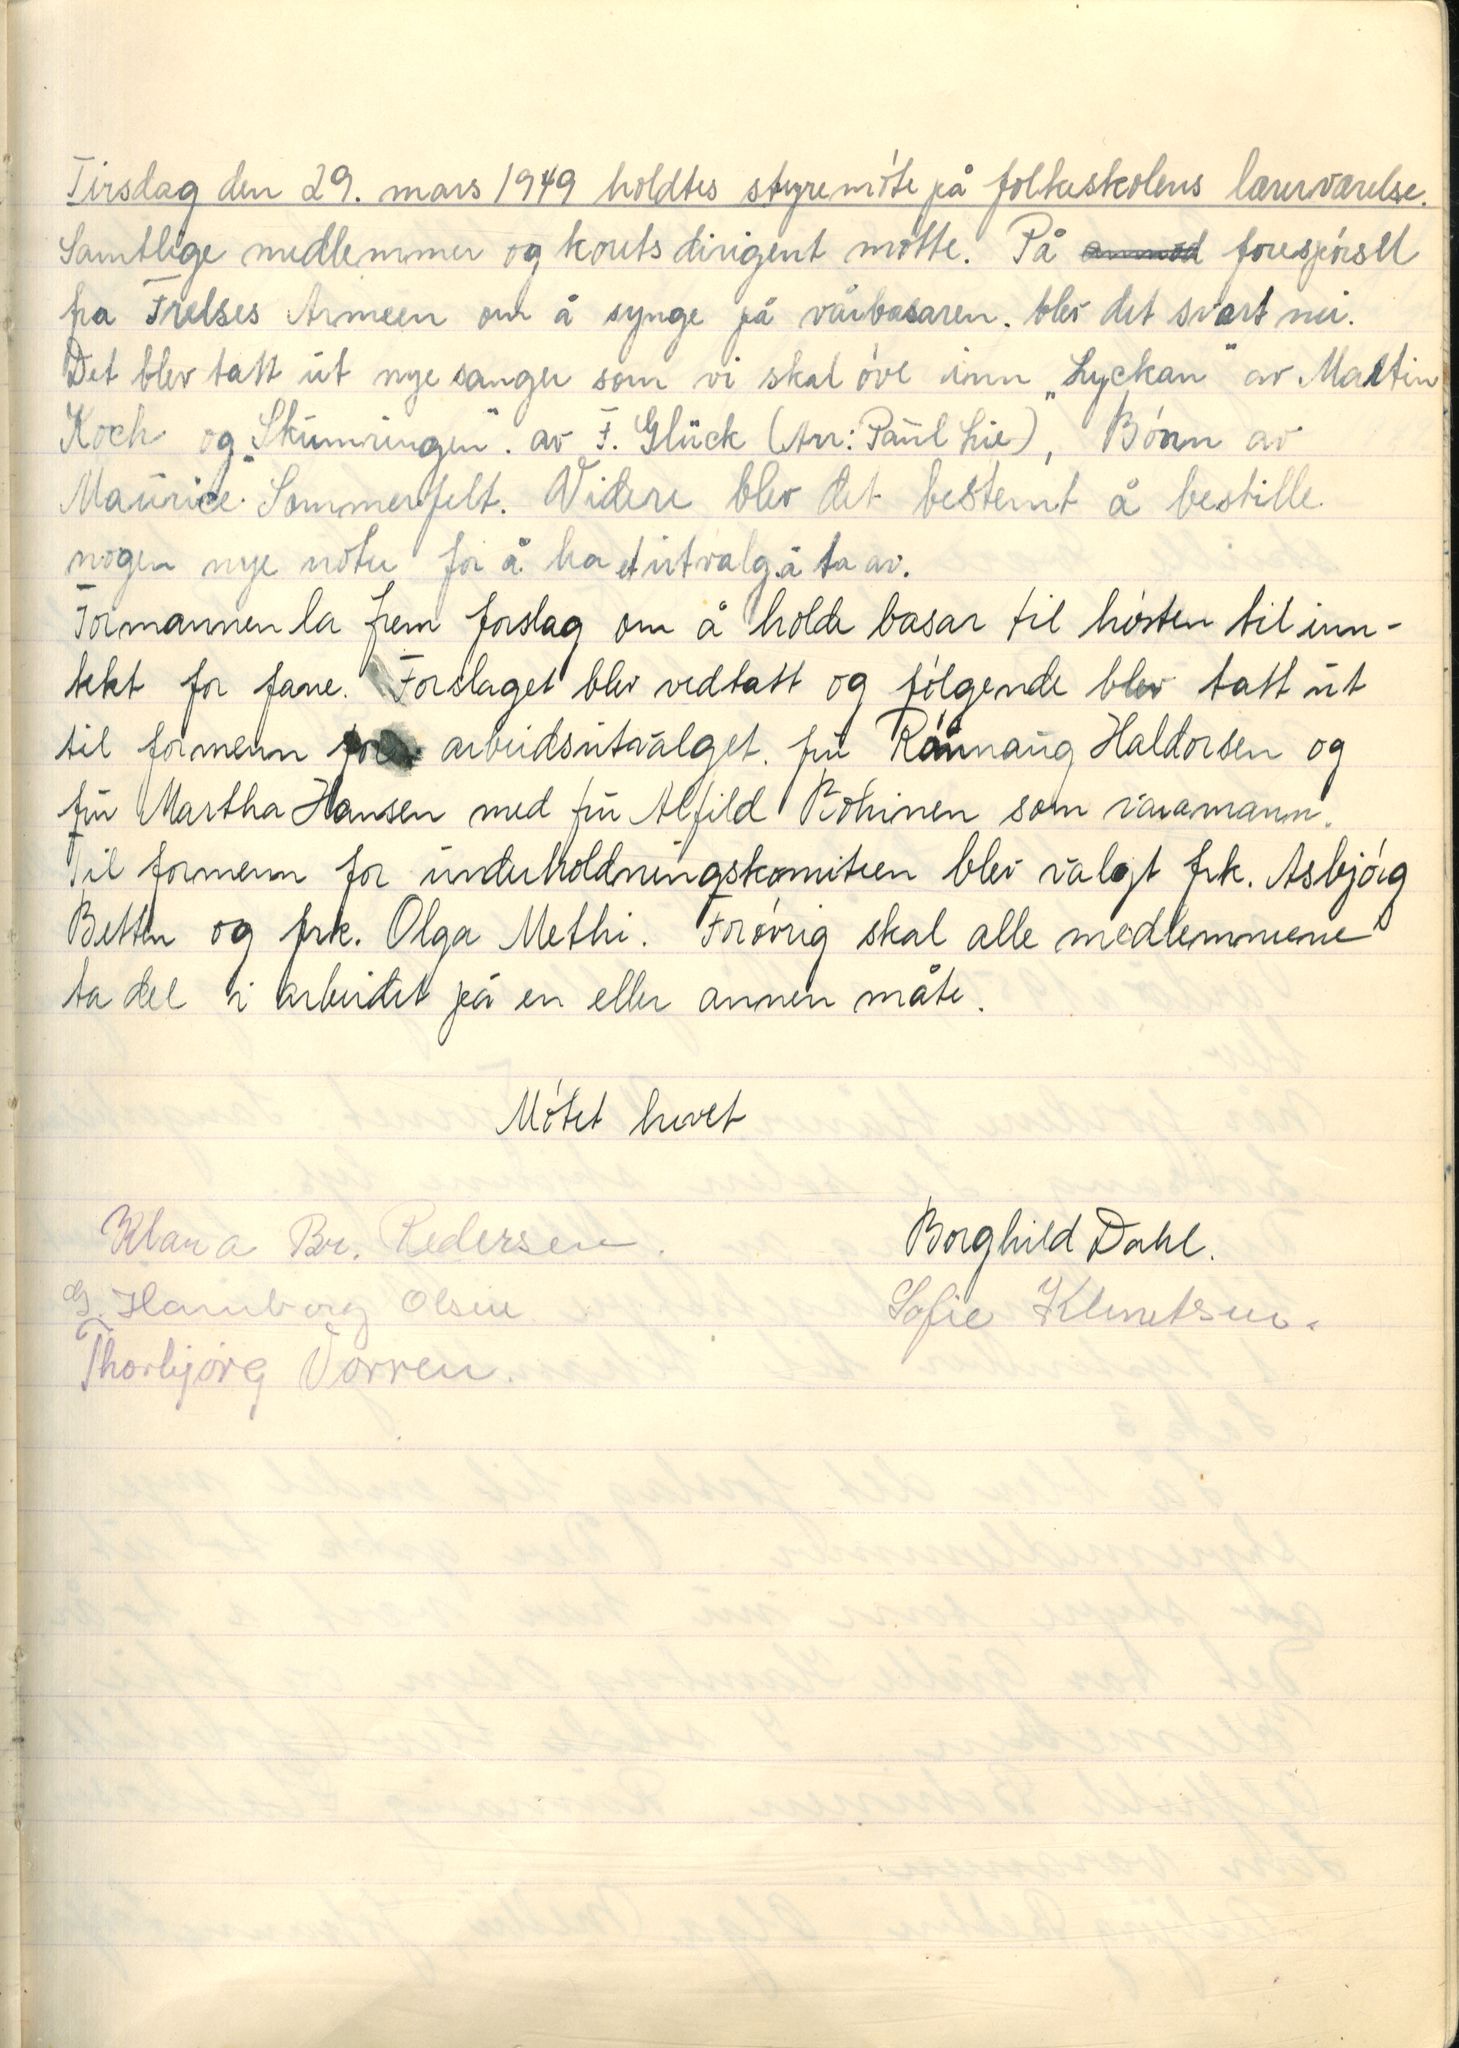 Tirsdag den 29. mars 1949 holdtes styremöte på folkeskolens lærerværelse.
Samtlige medlemmer og korets dirigent møtte. På anmod forespörsel
fra Frelses Armeen om å synge på vårbasaren. blev det svart nei.
Det blev tatt ut nye sanger som vi skal öve inn „Lyckan" av Martin
Koch og „Skumringen". av F. Glück (Arr: Paul Lie), Bönn av
Maurice Sommerfelt. Videre blev det bestemt å bestille
nogen nye noter for å ha et utvalg å ta av.
Formannen la frem forslag om å holde basar til hösten til inn-
tekt for fane. Forslaget blev vedtatt og fölgende blev tatt ut
til formenn for arbeidsutvalget. fru Rönnaug Haldorsen og
fru Martha Hansen med fru Alfild Bohinen som varamann.
Til formenn for underholdningskomiteen blev valgt frk. Asbjörg
Betten og frk. Olga Methi. Forövrig skal alle medlemmene
ta del i arbeidet på en eller annen måte.
Mötet hevet
Klara Br. Pedersen.
Borghild Dahl.
G. Hamborg Olsen
Sofie Klemetsen.
Thorbjörg Vorren.